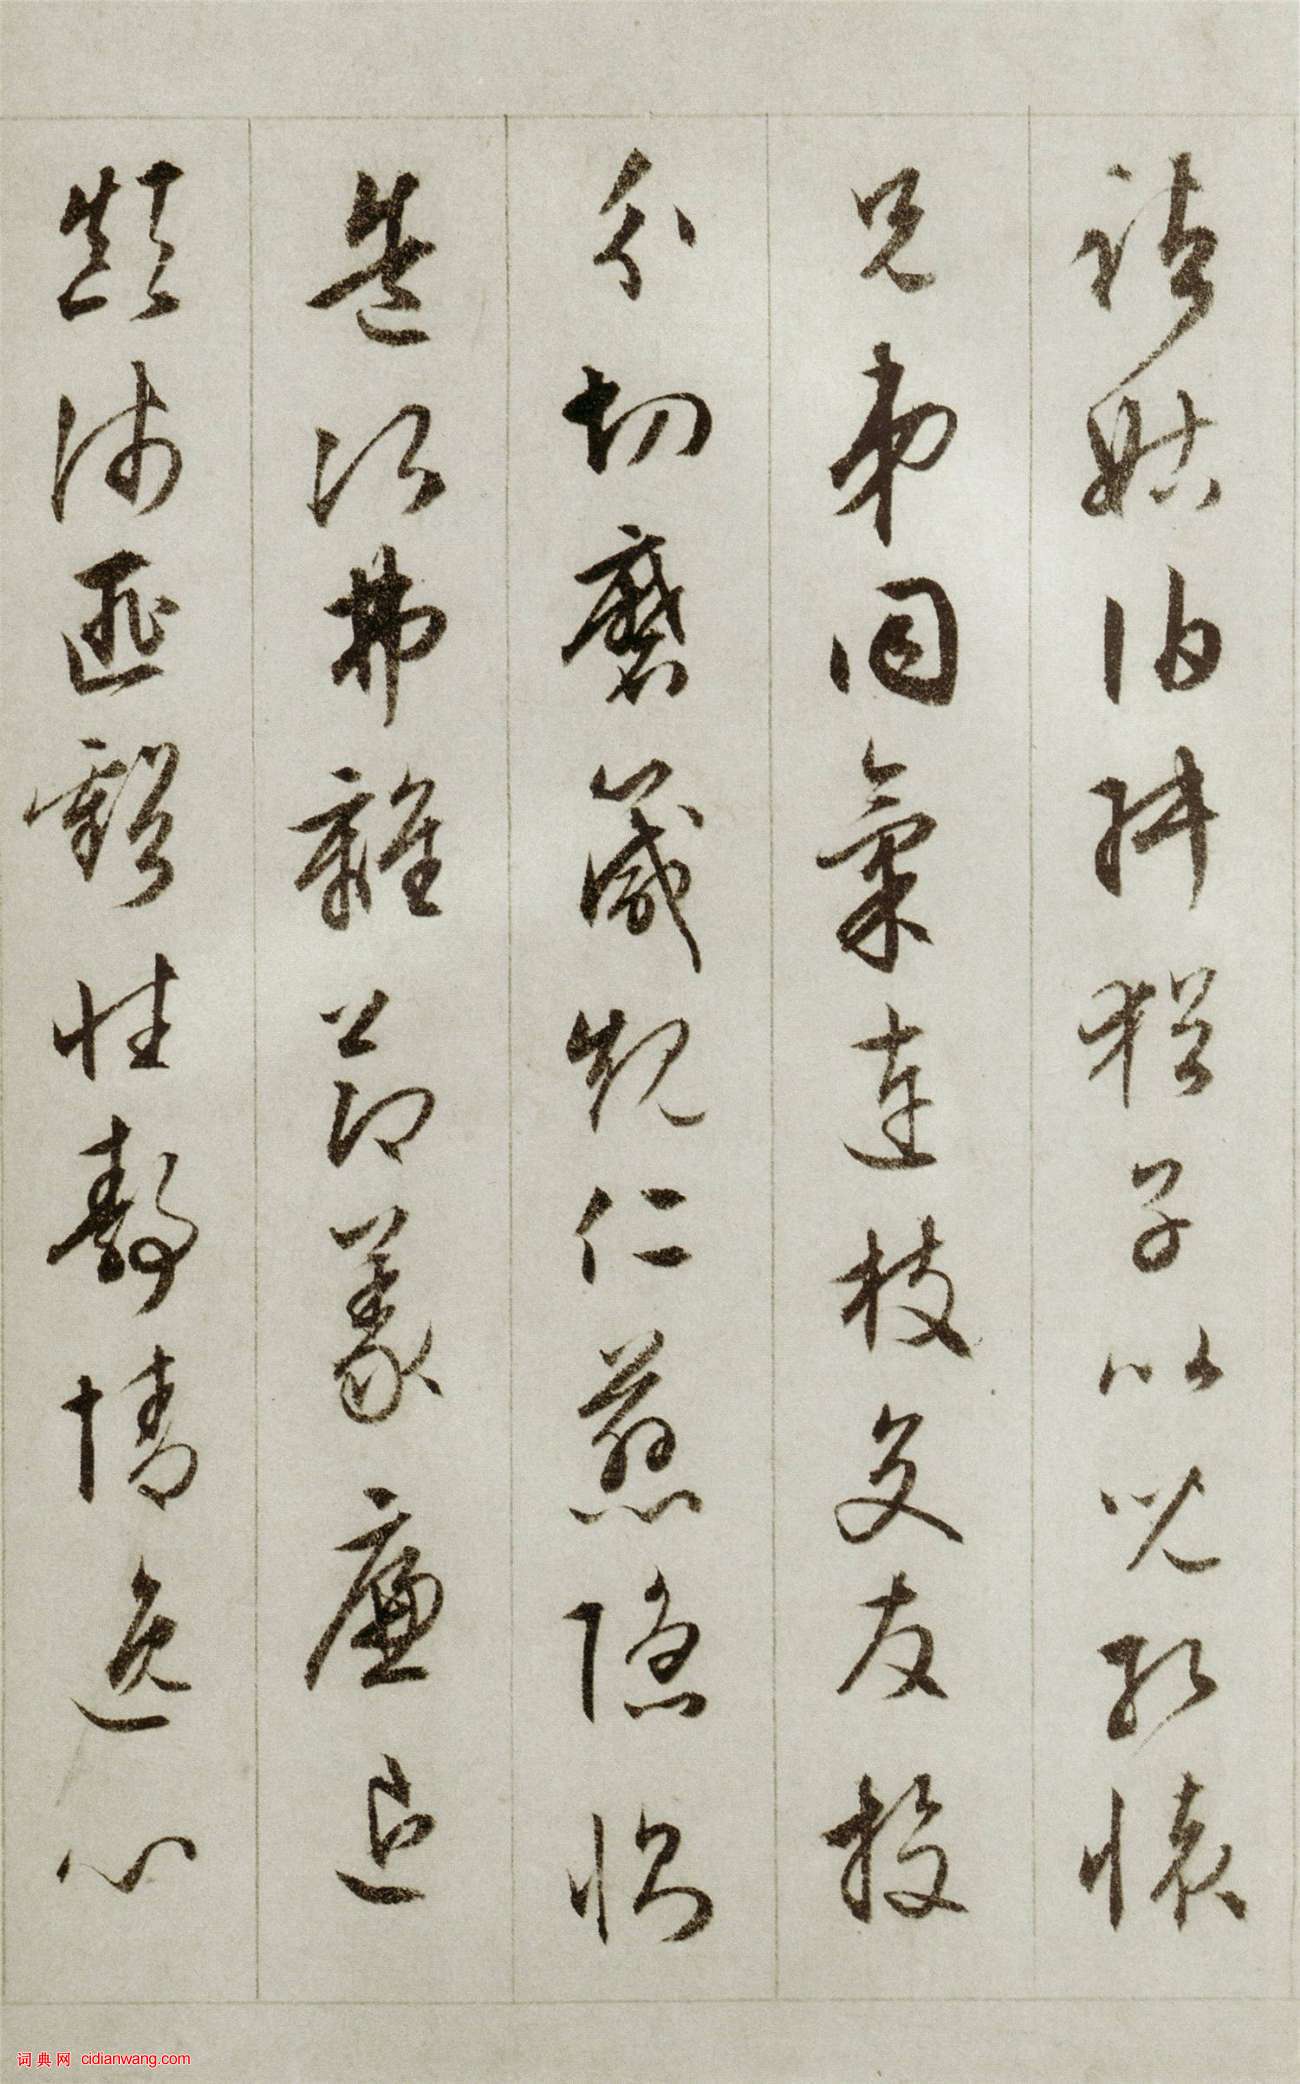 諸姑伯叔猶子比兒孔懷
兄弟同氣連枝交友投
分切磨箴規仁慈隱惻
造次弗離節義廉退
顛沛匪虧性靜情逸心
词典网 cidianwang.com